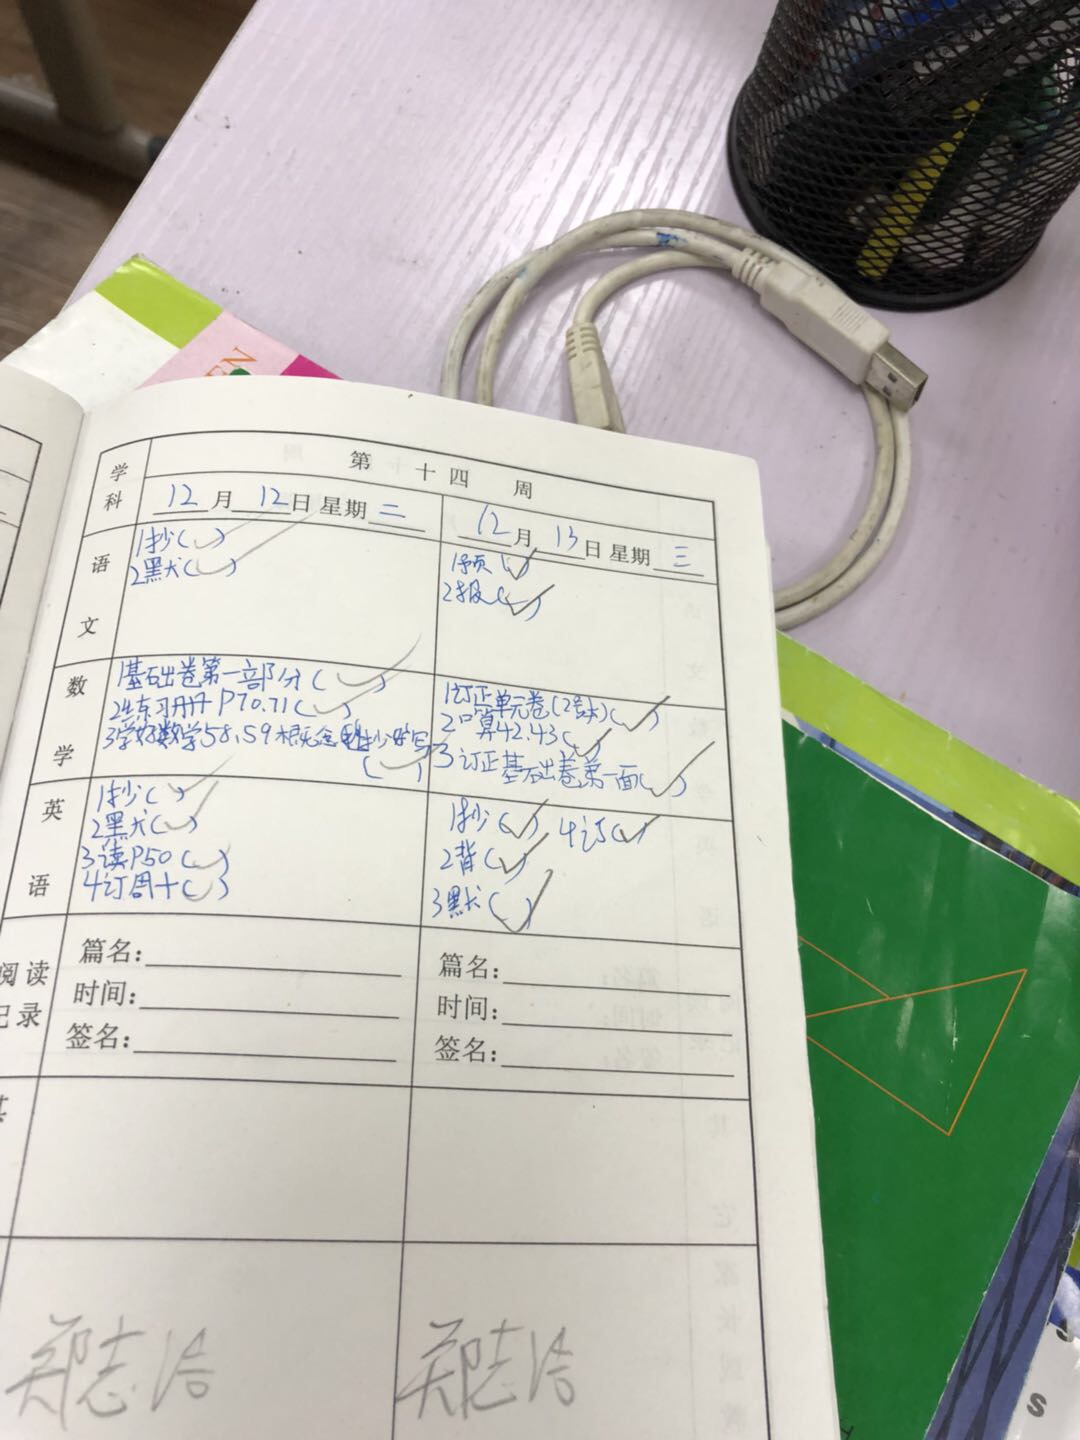 EN
学科
第 十四 周
12月 12日 星期二
12月 13日 星期三
语文
1抄(✓)
2默(✓)
1预(✓)
2报(✓)
数学
1基础卷第一部分(✓)
2练习册P70.71(✓)
3学好数学58.59
(✓)
1订正单元卷(2号本)(✓)
2口算42.43(✓)
3订正基础卷第一面(✓)
英语
1抄(✓)
2默(✓)
3读P50(✓)
4订周十(✓)
1抄(✓) 4订(✓)
2背(✓)
3默(✓)
阅读
记录
篇名:
时间:
签名:
篇名:
时间:
签名:
其
郑志洁
郑志洁
S